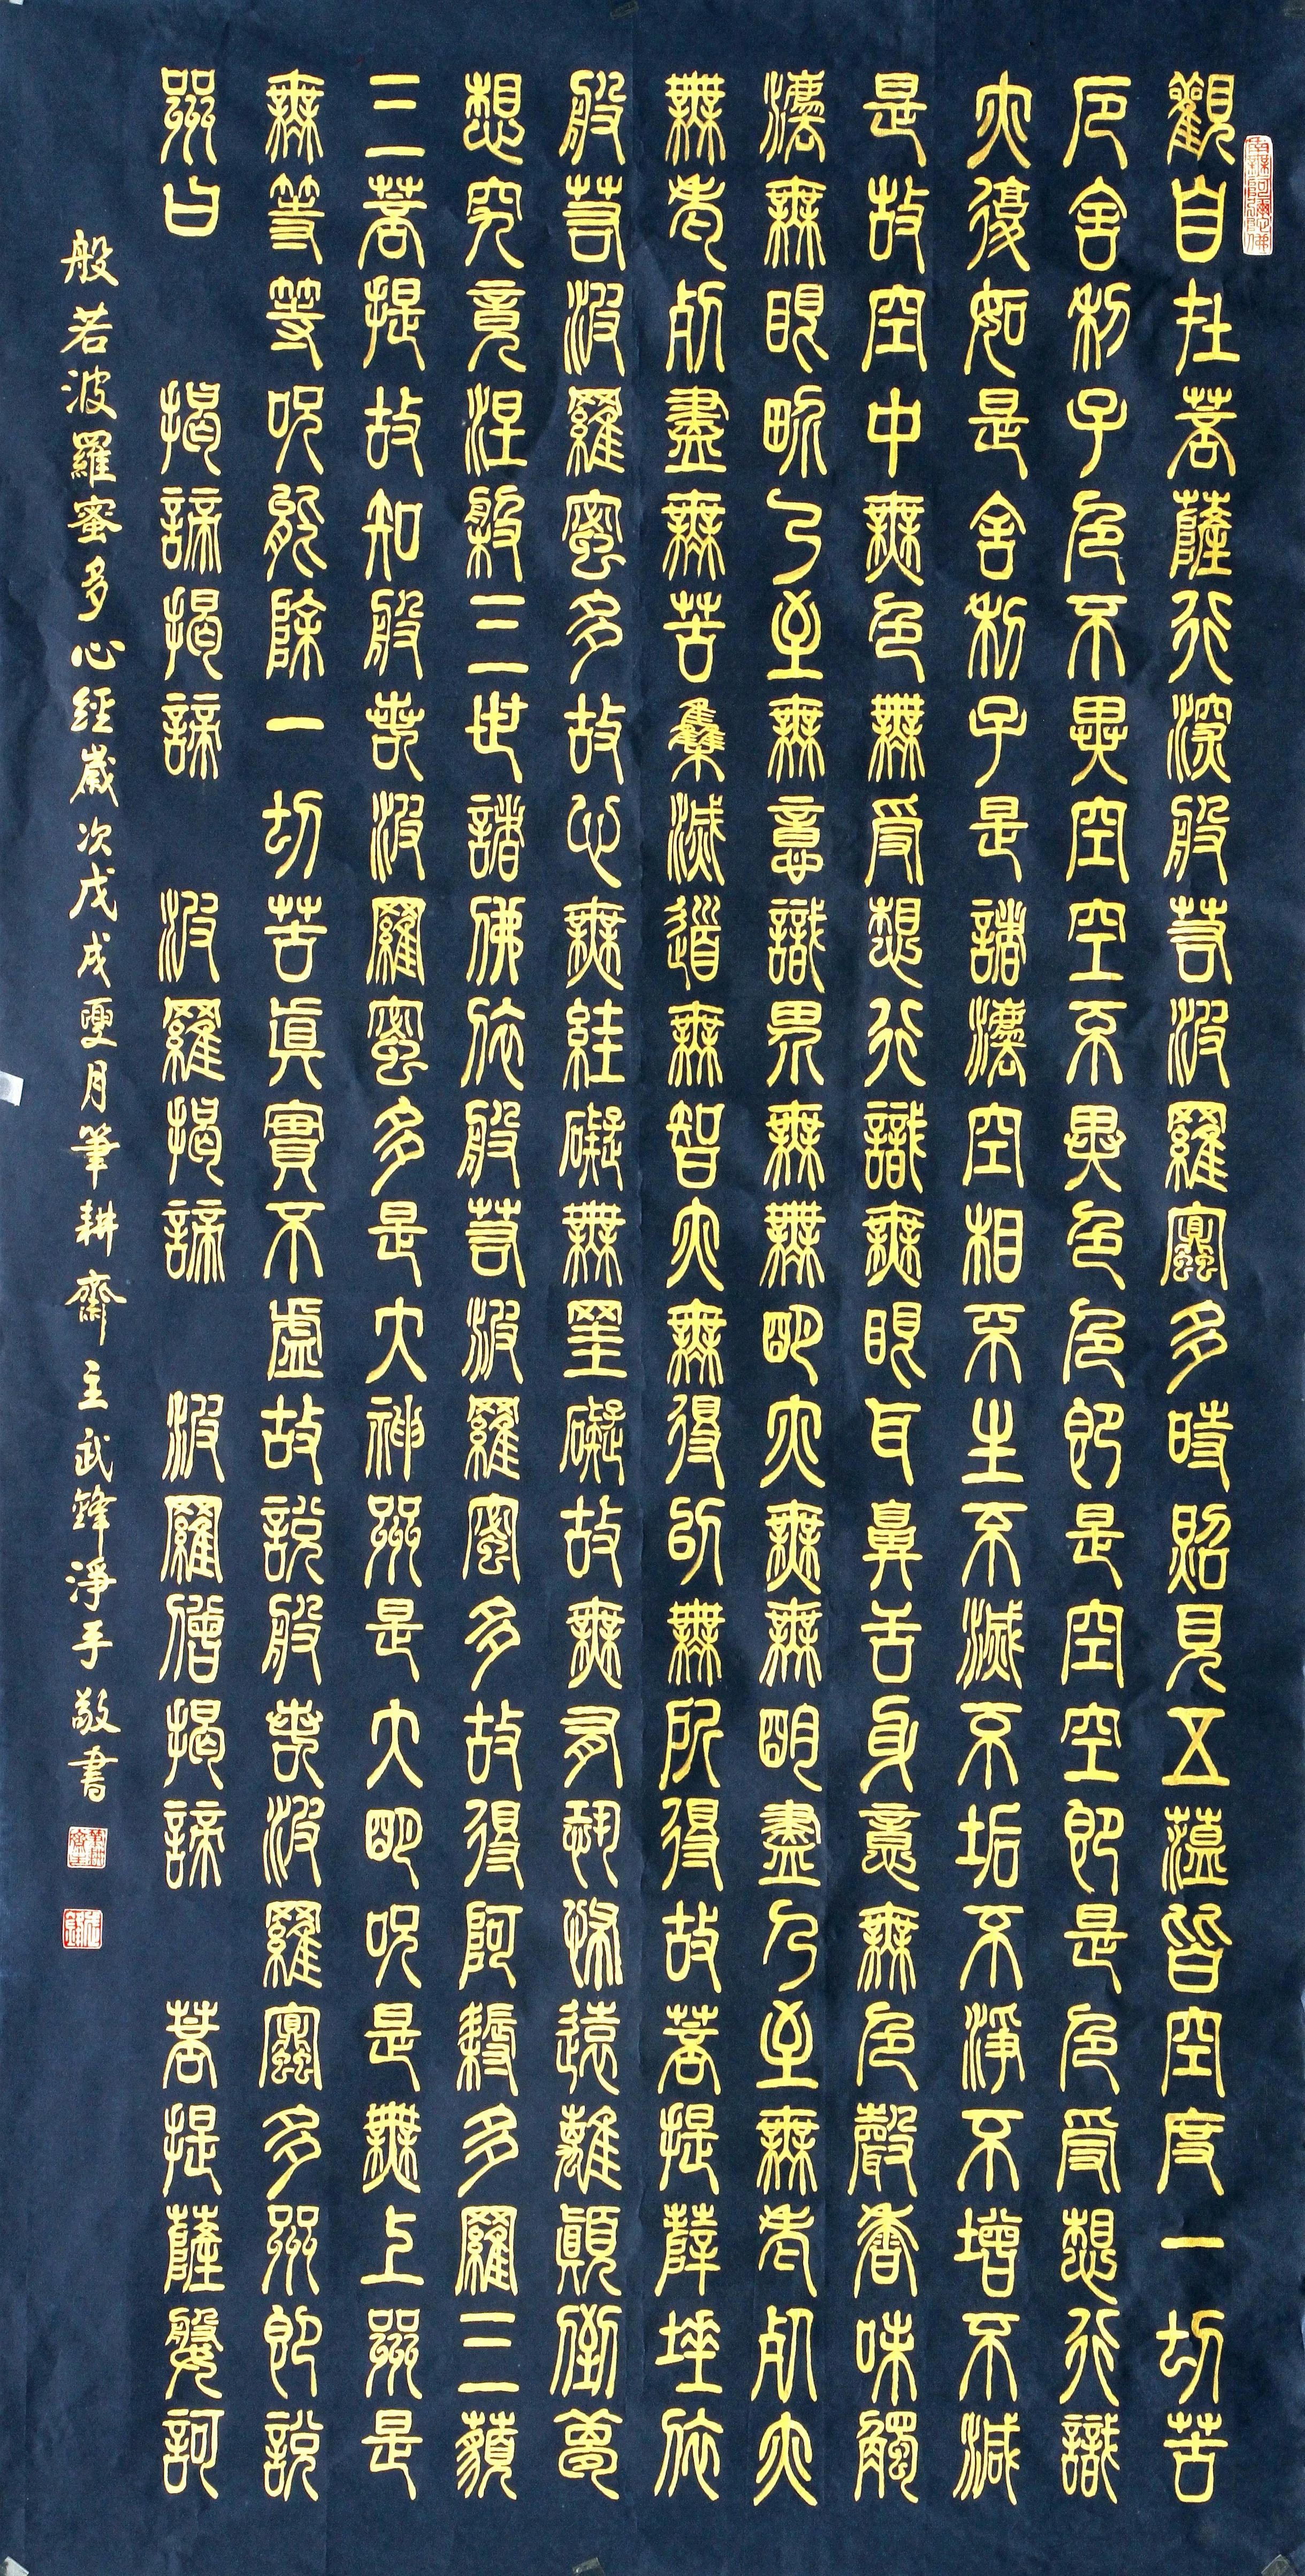 南無阿彌陀佛
觀自在菩薩行深般若波羅蜜多時照見五蘊皆空度一切苦
厄舍利子色不異空空不異色色即是空空即是色受想行識
亦復如是舍利子是諸法空相不生不滅不垢不淨不增不減
是故空中無色無受想行識無眼耳鼻舌身意無色聲香味觸
法無眼界乃至無意識界無無明亦無無明盡乃至無老死亦
無老死盡無苦集滅道無智亦無得以無所得故菩提薩埵依
般若波羅蜜多故心無絓礙無罣礙故無有恐怖遠離顛倒夢
想究竟涅槃三世諸佛依般若波羅蜜多故得阿耨多羅三藐
三菩提故知般若波羅蜜多是大神咒是大明咒是無上咒是
無等等咒能除一切苦真實不虛故說般若波羅蜜多咒即說
咒曰 揭諦揭諦 波羅揭諦 波羅僧揭諦 菩提薩婆訶
般若波羅蜜多心經歲次戊戌夏月筆耕齋主武鋒淨手敬書